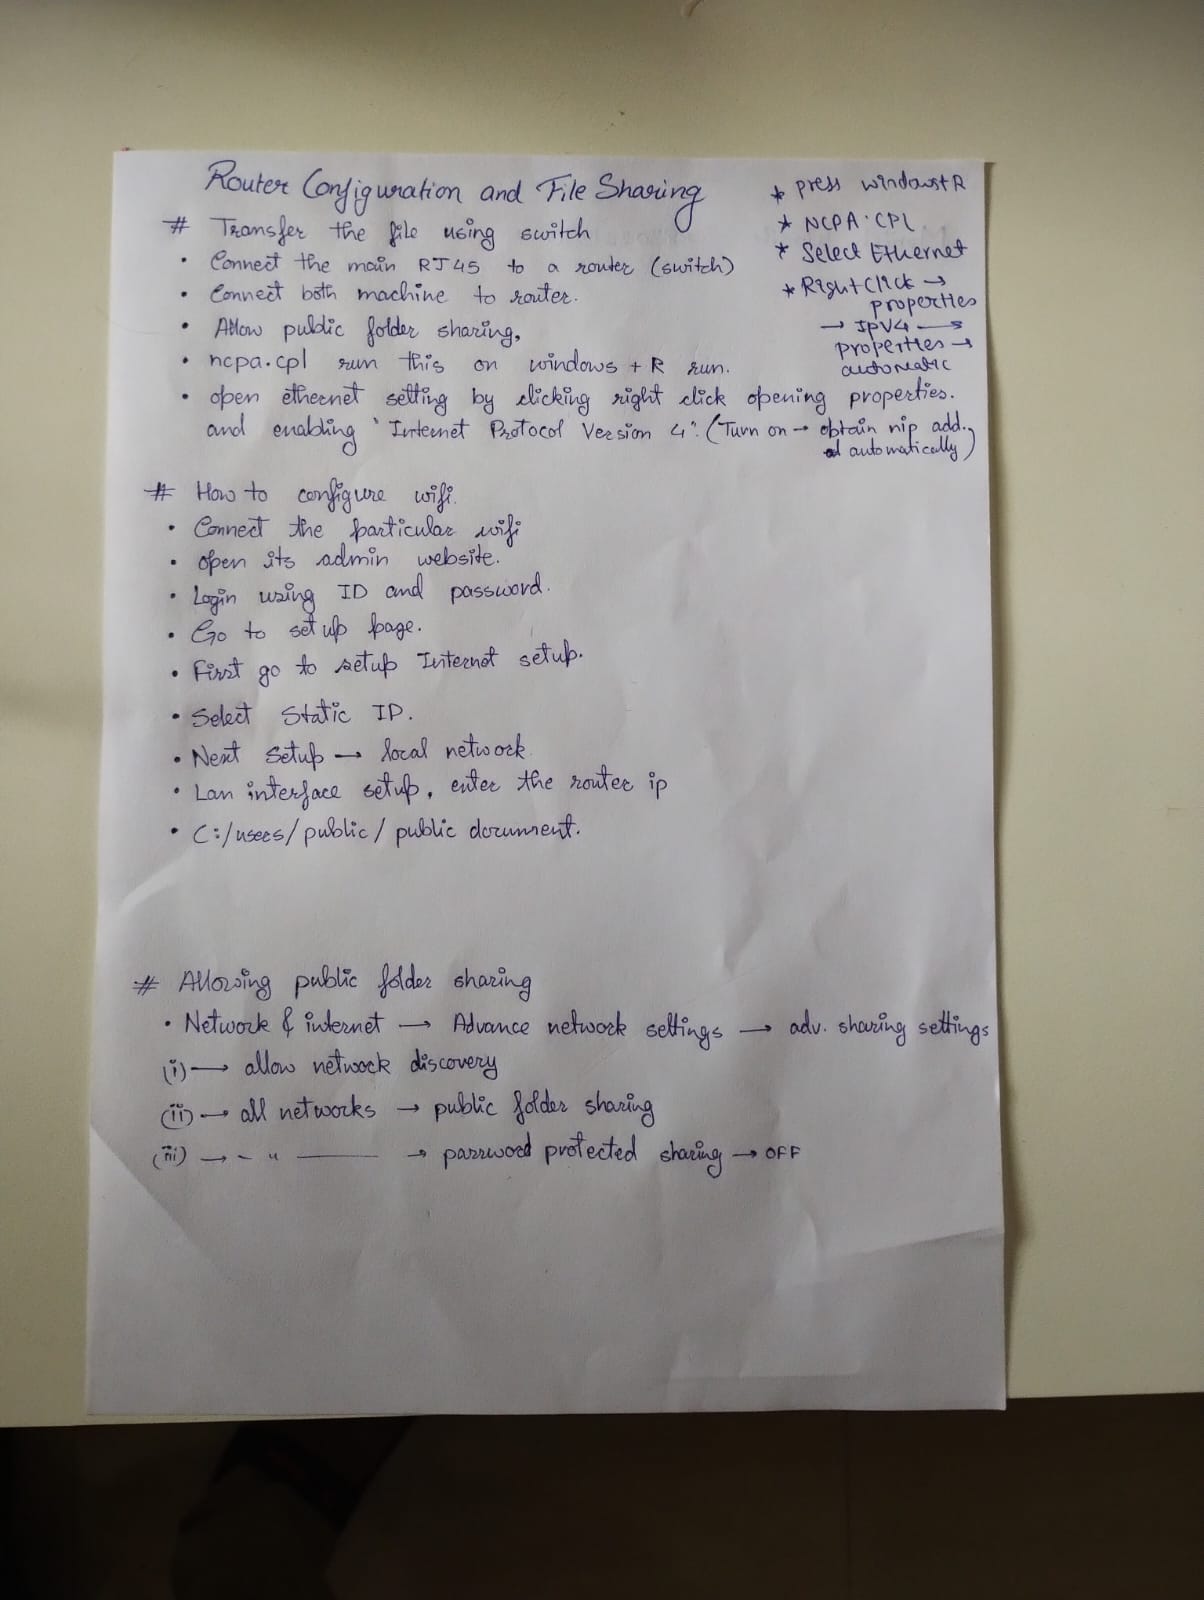 Router Configuration and File Sharing
# Transfer the file using switch
• Connect the main RJ45 to a router (switch)
• Connect both machine to router.
• Allow public folder sharing,
• ncpa.cpl run this on windows + R run.
• open ethernet setting by clicking right click opening properties.
and enabling "Internet Protocol Version 4". (Turn on → obtain nip add.
automatically)
* press windows+R
* NCPA.CPL
* Select Ethernet
* Right Click →
properties
→ IPV4 →
properties →
automatic
# How to configure wifi.
• Connect the particular wifi
• open its admin website.
• Login using ID and password.
• Go to set up page.
• First go to setup Internet setup.
• Select Static IP.
• Next setup → local network
• Lan interface setup, enter the router ip
• C:/users/public/public document.
# Allowing public folder sharing
• Network & internet → Advance network settings → adv. sharing settings
(i) → allow network discovery
(ii) → all networks → public folder sharing
(iii) → – " —— → password protected sharing → OFF